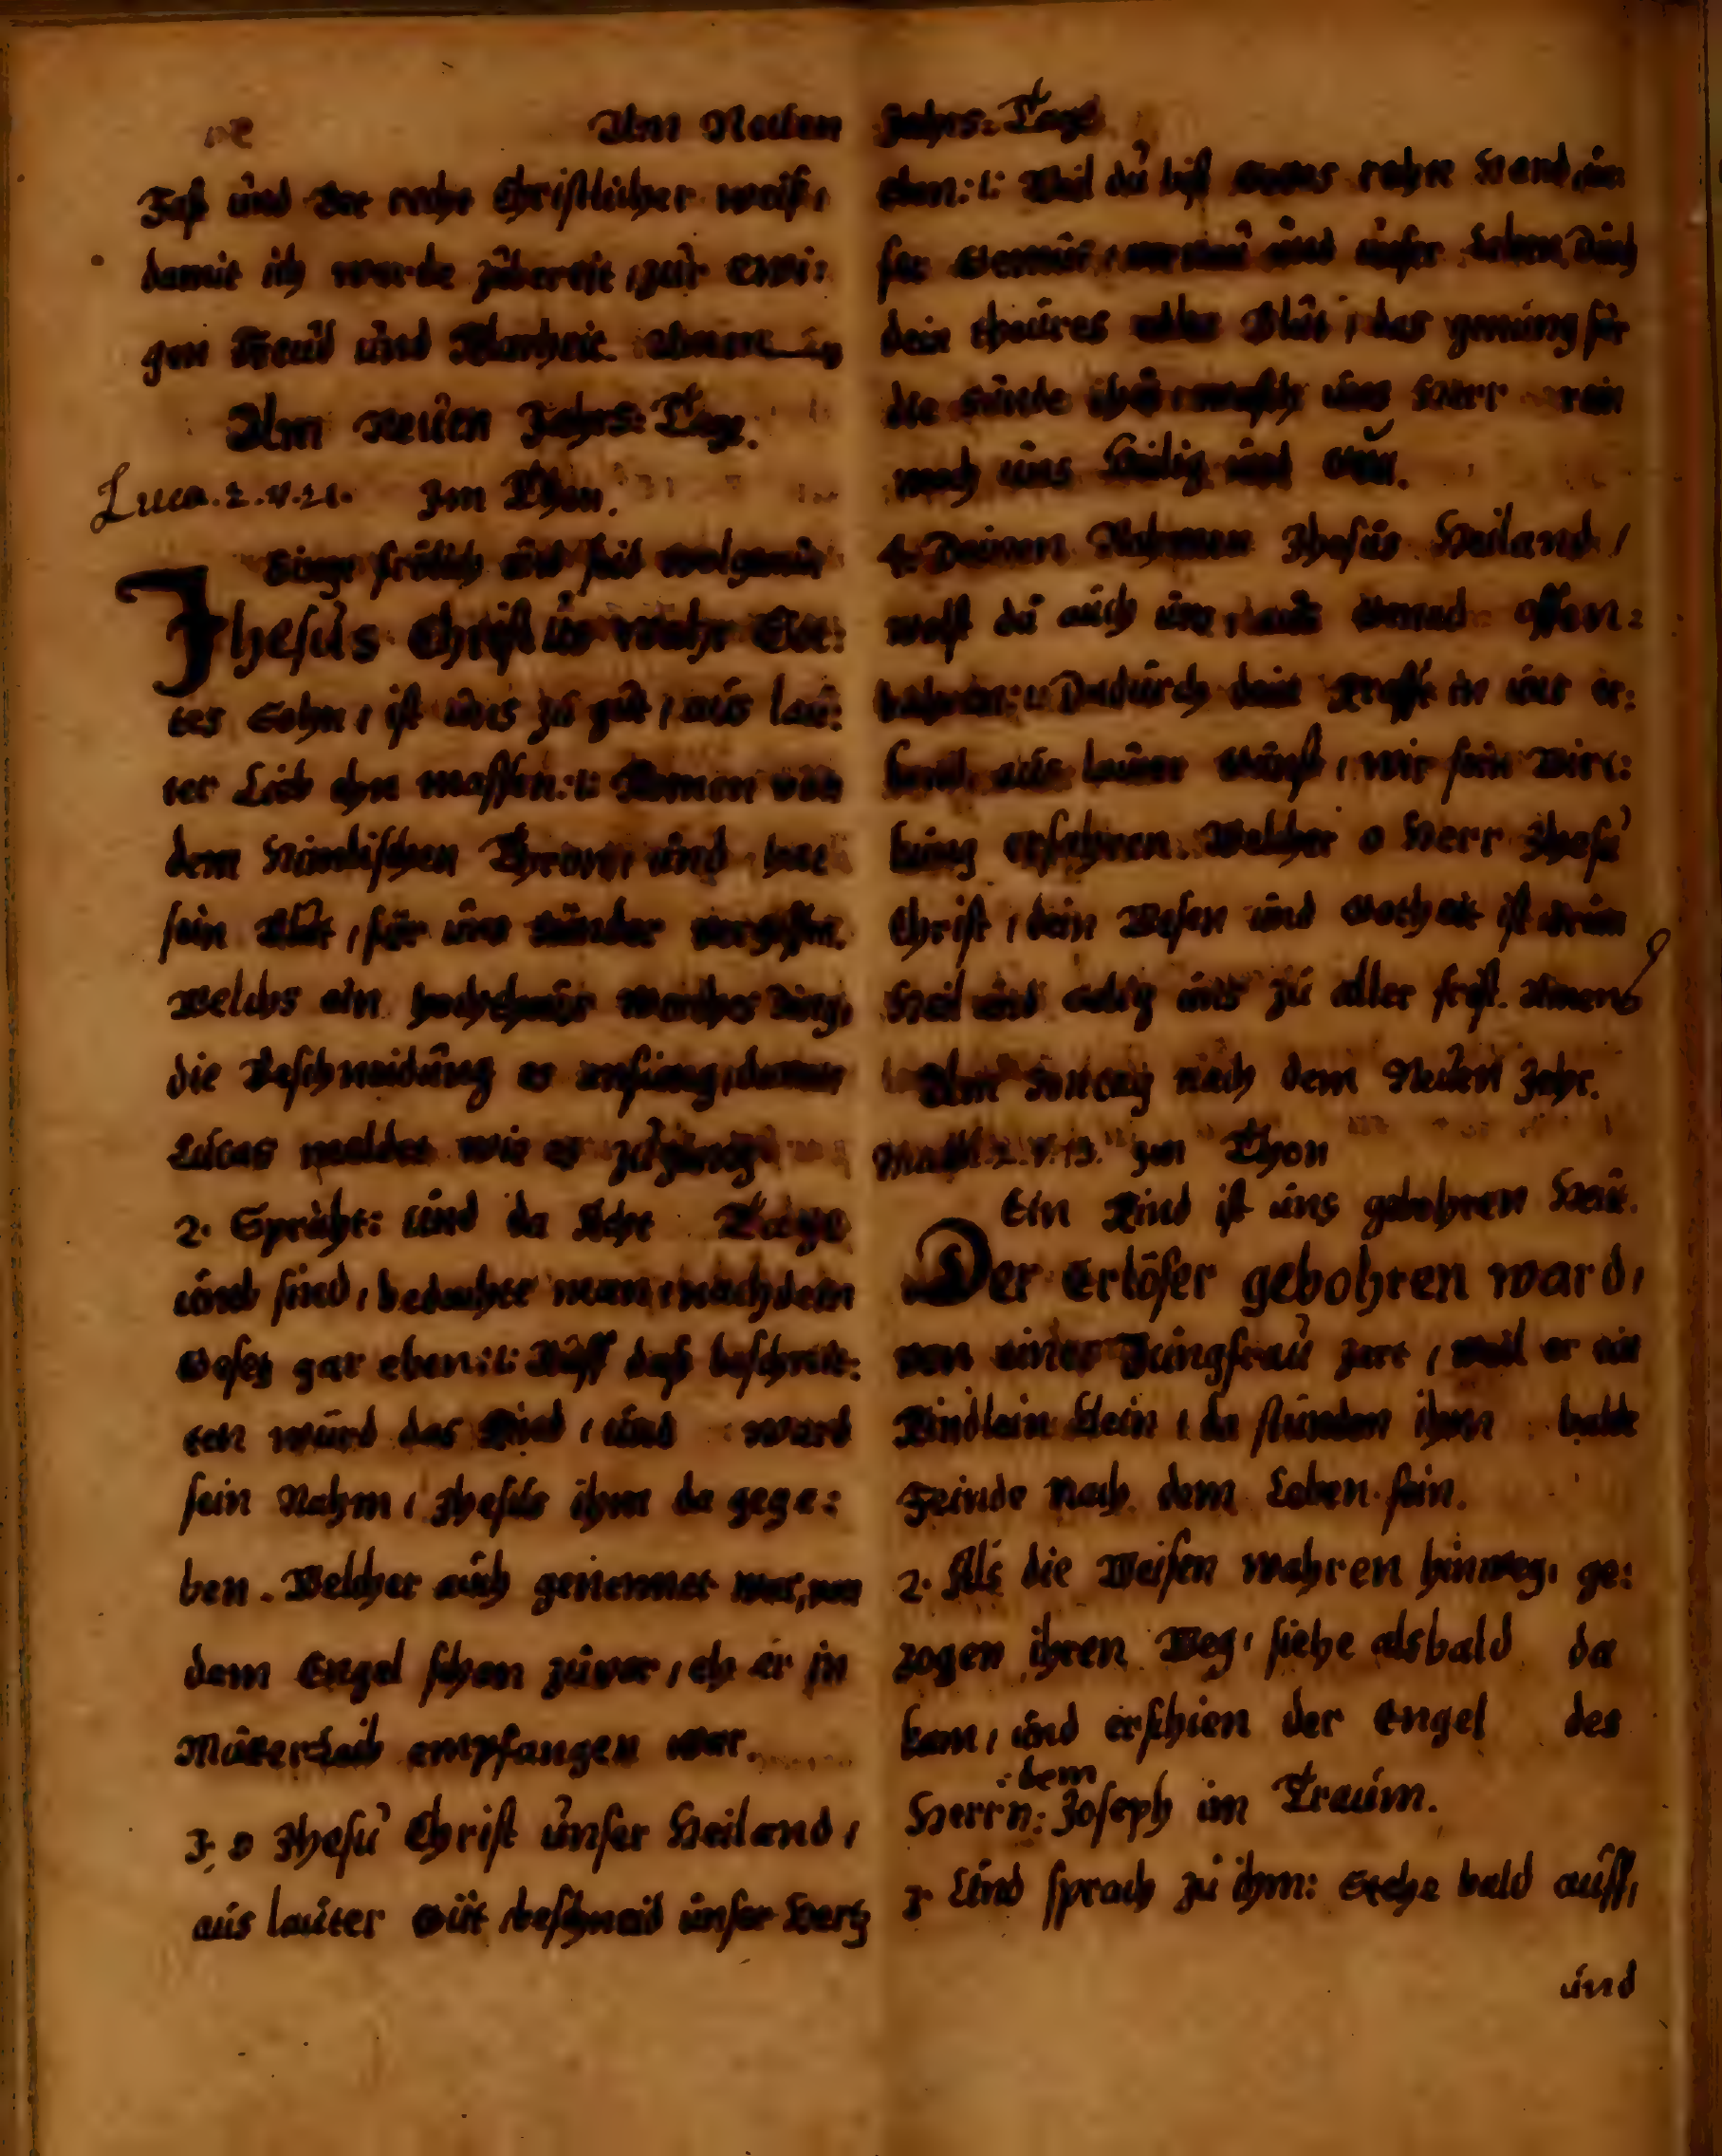 Am Neüen Jahrs: Tage
Faß ünd Bet recht Christlicher weiß,
damit ich werde zübereit, zür Ewi:
gen Freüd ünd Klarheit. Amen
Am Neüen Jahrs: Tage.
Luca. 2. v. 21. Im Thon.
Singt frölich ünd seid wolgemüt
Jhesüs Christüs wahr Got:
tes Sohn, ist üns zü güt, aüs laü:
ter Lieb ohn massen:t: Komen von
dem Himlischen Thron, ünd hat
sein Blüt, für üns Sünder vergossen.
Welchs ein hochtheürs werthes Ding,
die Beschneidüng er anfieng,
Lücas meldet wie es zügieng
2. Spricht: ünd da Acht Tage
ümb sind, bedachte man, nach dem
Gesetz gar eben:t: Aüff daß beschnit:
ten würd das Kind, ünd ward
sein Nahm, Jhesüs ihm da gege:
ben. Welcher aüch genennet war, von
dem Engel schon züvor, eh er in
Mütterleib empfangen war.
3. O Jhesü Christ ünser Heiland,
aüs laüter Güt beschneid ünser Hertz
eben:t: Weil dü bist Gottes rechte Hand, ün:
ser ünd ünser Leben, Düch
dein theüres Blüt, das genüng für
die Sünde thüt, wasch üns Herr rein
mach üns Heilig ünd
4. Deinen Nahmen Jhesüs Heiland,
wolst dü aüch üns, aüs Genad offen:
bahren:t: Dadürch dein Krafft in üns er:
kand, aüs laüter Günst, wir sein Wirc:
küng erfahren. Welcher o Herr Jhesü
Christ, dein Wesen ünd Gotheit ist drüm
Heil ünd selig üns zü aller frist. Amen
Am Sontag nach dem Neüen Jahr.
Math. 2. v. 13. Im Thon
Ein Kind ist üns gebohren Heüt.
Der Erlöser gebohren ward,
von einer Jüngfraü zart, weil er ein
Kindlein klein, da stünden ihm balde
Feinde Nach dem Leben sein.
2. Als die Weisen wahren hinweg, ge:
zogen ihren Weg, siehe alsbald da
kam, ünd erschien der Engel des
Herrn: dem Joseph im Traüm.
3. Ünd sprach zü ihm: Stehe bald aüff,
ünd